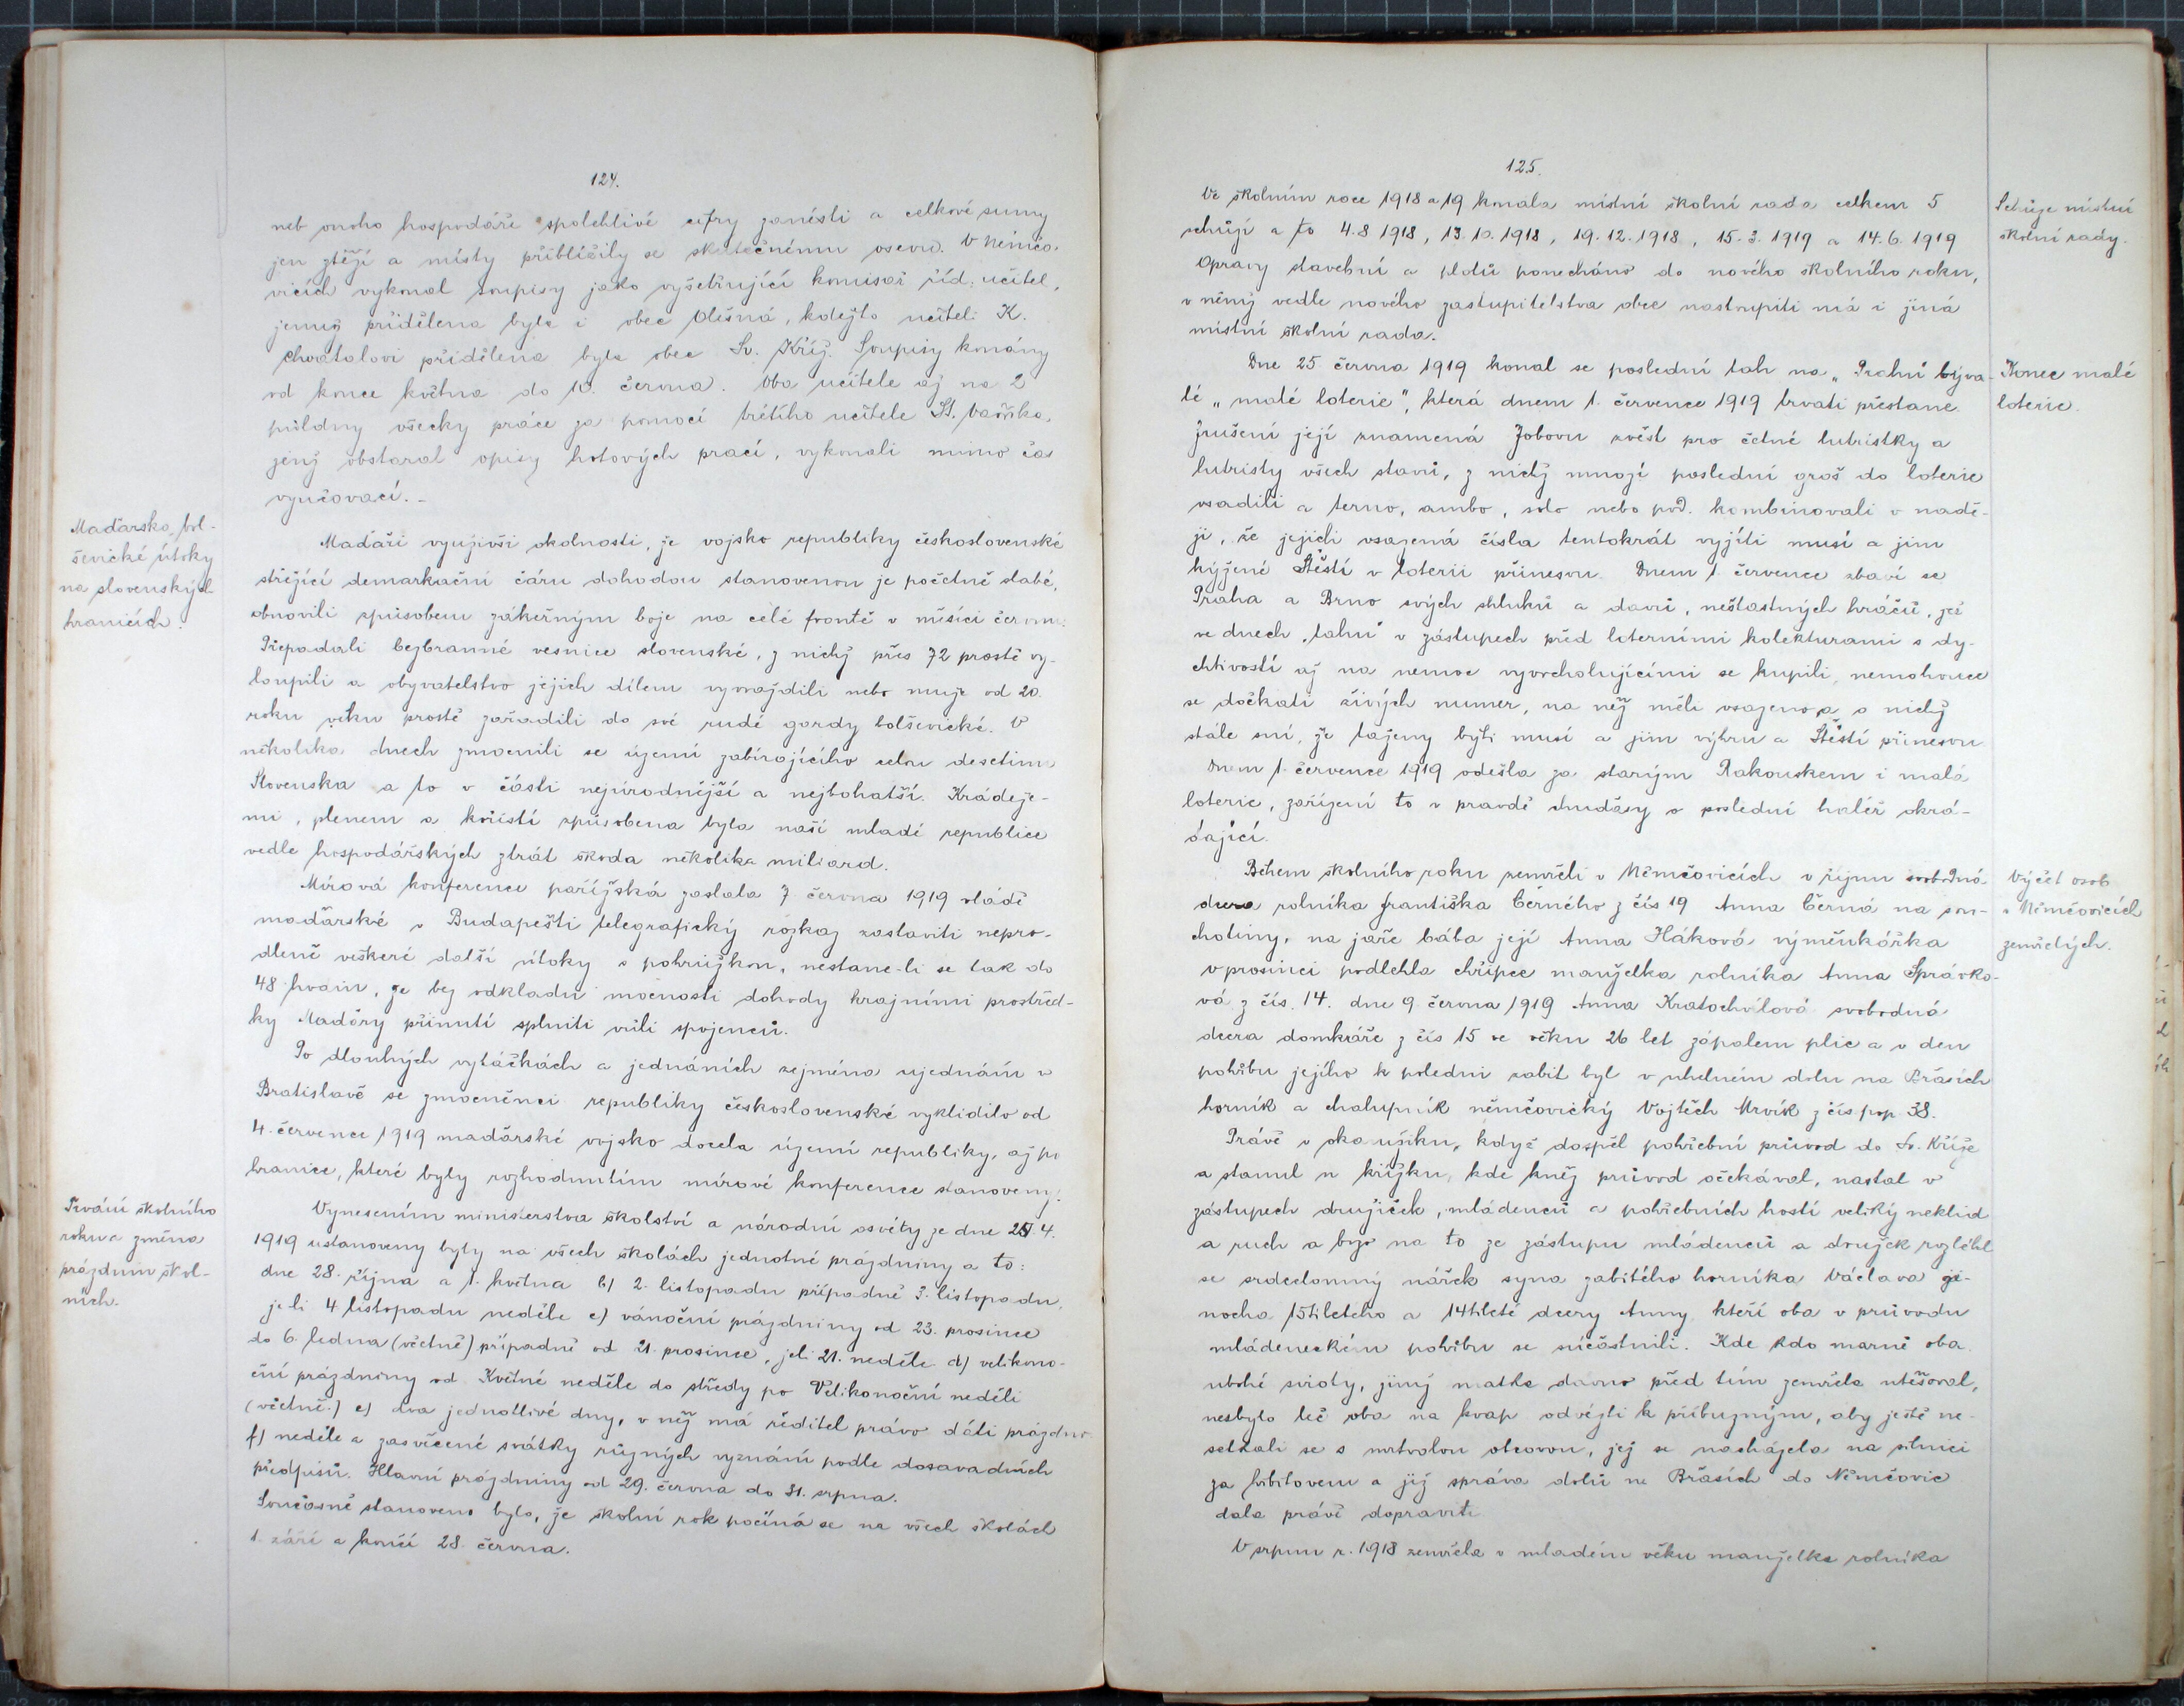 124.
neb onoho hospodáře spolehlivé cifry zanésti a celkové sumy
jen ztěží a místy přiblížily se skutečnému osevu. V Němčo-
vicích vykonal soupisy jako vyšetřující komisař říd. učitel,
jemuž přidělena byla i obec Olešná, kdežto učiteli K.
Chvatalovi přidělena byla obec Sv. Kříž. Soupisy konány
od konce května do 10. června. Oba učitelé až na 2
půldny všecky práce za pomocí třetího učitele St. Vaňka,
jenž obstaral opisy hotových prací, vykonali mimo čas
vyučovací. -
Maďarsko bol-
ševické útoky
na slovenských
hranicích.
Maďaři využivši okolnosti, že vojsko republiky československé
střežící demarkační čáru dohodou stanovenou je početně slabé,
obnovili způsobem zákeřným boje na celé frontě v měsíci červnu.
Přepadali bezbranné vesnice slovenské, z nichž přes 72 prostě vy-
loupili a obyvatelstvo jejich dílem vyvraždili nebo muže od 20.
roku věku prostě zařadili do své rudé gardy bolševické. V
několika dnech zmocnili se území zabírajícího celou desetinu
Slovenska a to v části nejúrodnější a nejbohatší. Krádeže-
mi, plenem a kořistí způsobena byla naší mladé republice
vedle hospodářských ztrát škoda několika miliard.
Mírová konference pařížská zaslala 7 června 1919 vládě
maďarské v Budapešti telegrafický rozkaz zastaviti nepro-
dleně veškeré další útoky s pohrůžkou, nestane-li se tak do
48 hodin, že bez odkladu mocnosti dohody krajními prostřed-
ky Maďary přinutí splniti vůli spojenců.
Po dlouhých vytáčkách a jednáních zejména ujednání v
Bratislavě se zmocněnci republiky československé vyklidilo od
4. července 1919 maďarské vojsko docela území republiky, až po
hranice, které byly rozhodnutím mírové konference stanoveny.
Trvání školního
roku a změna
prázdnin škol-
ních.
Vynesením ministerstva školství a národní osvěty ze dne 4.
1919 ustanoveny byly na všech školách jednotné prázdniny a to:
dne 28. října a 1. května b) 2. listopadu případně 3. listopadu,
je li 4 listopadu neděle c) vánoční prázdniny od 23. prosince
do 6. ledna (včetně) případně od 21. prosince, jeli 21. neděle d) velikono-
ční prázdniny od Květné neděle do středy po Velikonoční neděli
(včetně.) e) dva jednotlivé dny, v něž má ředitel právo dáti prázdno
f) neděle a zasvěcené svátky různých vyznání podle dosavadních
předpisů. Hlavní prázdniny od 29. června do 31. srpna.
Současně stanoveno bylo, že školní rok počíná se na všech školách
1. září a končí 28. června.
125.
Ve školním roce 1918 a 19 konala místní školní rada celkem 5
schůzí a to 4.8 1918, 13.10.1918, 19.12.1918, 15.3.1919 a 14.6.1919
Opravy stavební a plotů ponecháno do nového školního roku,
v němž vedle nového zastupitelstva obec nastoupiti má i jiná
místní školní rada.
Schůze místní
školní rady.
Dne 25 června 1919 konal se poslední tah na „Prahu býva-
lé „malé loterie", která dnem 1. července 1919 trvati přestane.
Zrušení její znamená Jobovu zvěst pro četné lutristky a
lutristy všech stavů, z nichž mnozí poslední groš do loterie
vsadili a terno, ambo, solo nebo pod. kombinovali v nadě-
ji, že jejich vsazená čísla tentokrát vyjíti musí a jim
kýžené Štěstí v loterii přinesou. Dnem 1. července zbaví se
Praha a Brno svých shluků a davů, nešťastných hráčů, jež
ve dnech „tahu" v zástupech před loterními kolekturami s dy-
chtivostí až na nemoc vyvrcholujícími se kupili, nemohouce
se dočkati živých numer, na něž měli vsazeno a o nichž
stále sní, že taženy býti musí a jim výhru a Štěstí přinesou
Dnem 1. července 1919 odešla za starým Rakouskem i malá
loterie, zařízení to v pravdě chudasy o poslední haléř okrá-
dající.
Konec malé
loterie.
Během školního roku zemřeli v Němčovicích v říjnu svobodná
dcera rolníka Františka Černého z čís 19 Anna Černá na sou-
chotiny, na jaře bába její Anna Háková výměnkářka
v prosinci podlehla chřipce manželka rolníka Anna Správko-
vá z čís. 14. dne 9 června 1919 Anna Kratochvílová svobodná
dcera domkáře z čís 15 ve věku 26 let zápalem plic a v den
pohřbu jejího k poledni zabit byl v uhelném dolu na Břasích
horník a chalupník němčovický Vojtěch Mrvík z čís pop. 38.
Výčet osob
v Němčovicích
zemřelých.
Právě v okamžiku, když dospěl pohřební průvod do Sv. Kříže
a stanul u křížku, kde kněz průvod očekával, nastal v
zástupech družiček, mládenců a pohřebních hostí veliký neklid
a ruch a brzo na to ze zástupu mládenců a družek rozlehl
se srdcelomný nářek syna zabitého horníka Václava je-
nocha 15tiletého a 14tileté dcery Anny, kteří oba v průvodu
mládeneckém pohřbu se súčastnili. Kde kdo marně oba
ubohé siroty, jimž matka dávno před tím zemřela utěšoval,
nezbylo leč oba na kvap odvézti k příbuzným, aby ještě ne-
setkali se s mrtvolou otcovou, jež se nacházela na silnici
za hřbitovem a již správa dolů na Břasích do Němčovic
dala právě dopraviti.
V srpnu r. 1918 zemřela v mladém věku manželka rolníka